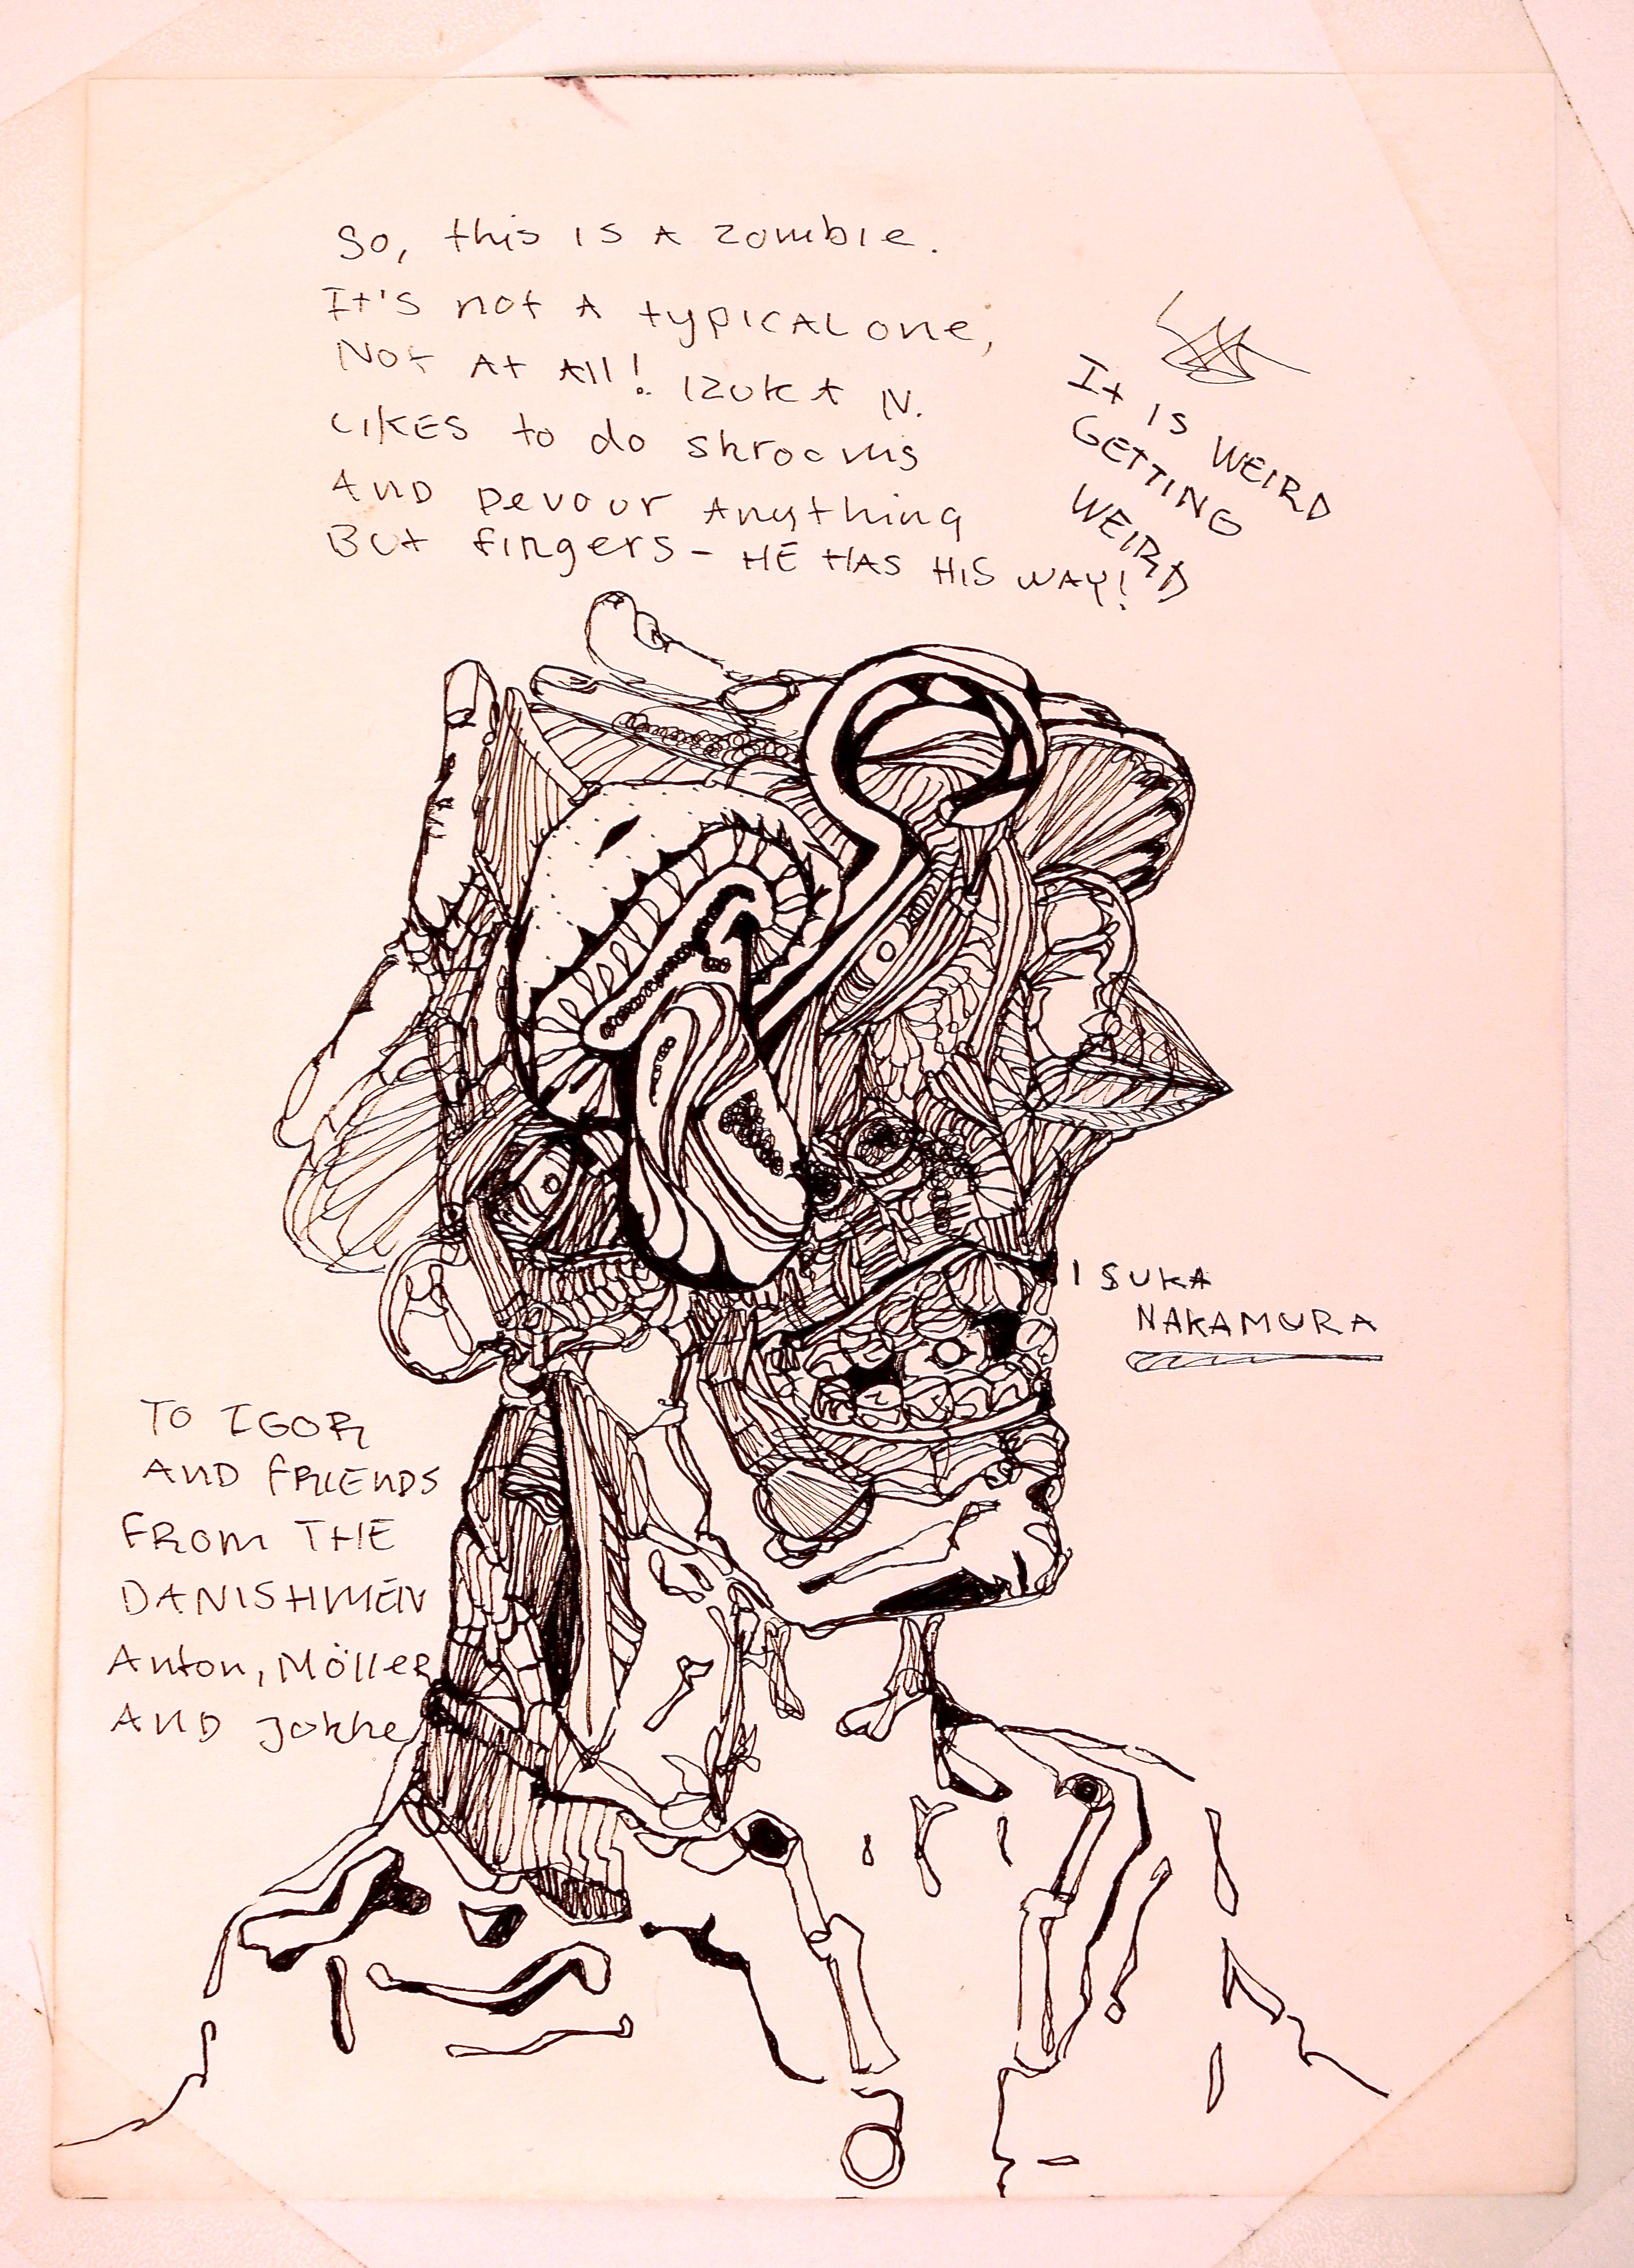 So, this is a zombie.
It's not a typical one,
Not at all! Izuka N.
Likes to do shrooms
and devour anything
But fingers - HE HAS HIS WAY!
It is WEIRD
GETTING
WEIRD
ISUKA
NAKAMURA
TO IGOR
AND FRIENDS
FROM THE
DANISHMEN
Anton, Möller
AND Jokke